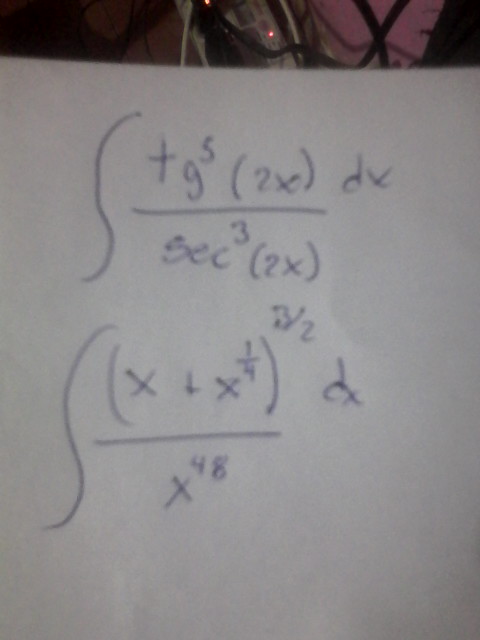 ∫ tg⁵(2x) / sec³(2x) dx
∫ (x + x^{1/4})^{3/2} / x⁴⁸ dx